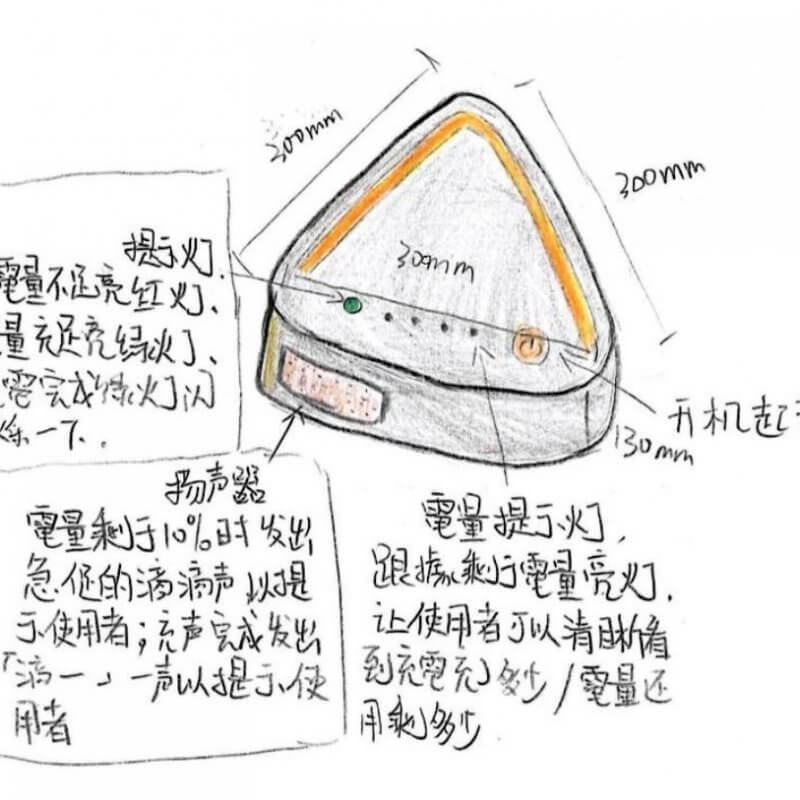 300mm
300mm
309mm
130mm
提示灯
電量不足亮红灯、
量充足亮绿灯、
電完成绿灯闪
一下..
开机
扬声器
電量剩于10%时发出
急促的滴滴声以提
示使用者；充声完成发出
「滴一」一声以提示使
用者
電量提示灯，
跟據剩于電量亮灯，
让使用者可以清晰看
到充電充了多少/電量还
用剩多少